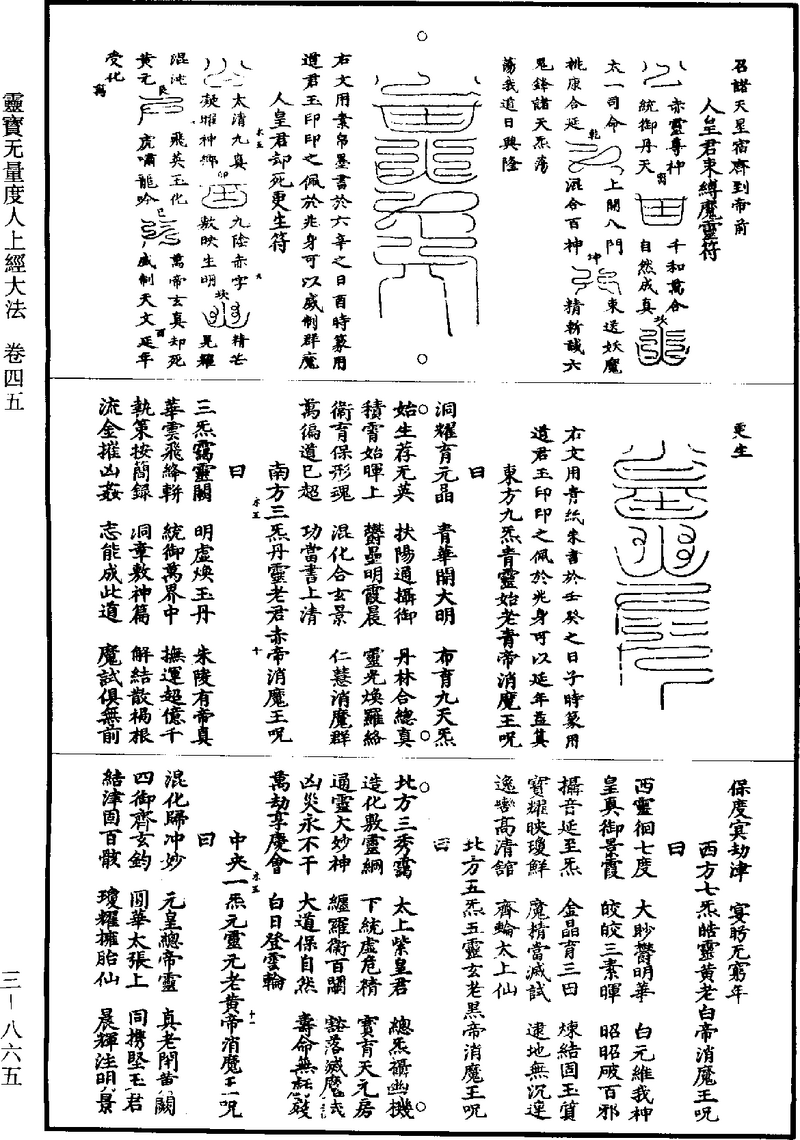 靈寶无量度人上經大法　卷四五
三－八六五
召諸天星宿齊到帝前
人皇君束縛魔靈符
赤靈尊神　千和萬合
統御丹天　自然成真
太一司命　上開八門　束送妖魔
桃康合延　混合百神　精斬誠六
鬼鋒諸天炁蕩
蕩我道日興隆
右文用素帛墨書於六辛之日酉時篆用
道君玉印印之佩於兆身可以威制群魔
人皇君却死更生符
太清九真　九陰赤字　精芒
凝堆神鄉　敷映生明　晃耀
混沌　飛英玉化　萬帝玄真却死
黃元　虎嘯龍吟　威制天文延年
受化
更生
右文用青紙朱書於壬癸之日子時篆用
道君玉印印之佩於兆身可以延年益筭
東方九炁青靈始老青帝消魔王呪
曰
洞耀育元晶　青華開大明　布育九天炁
始生荐无英　扶陽通攝御　丹林合總真
積霄始暉上　欝壘明霞晨　靈光煥羅絡
衛育保形魂　混化合玄景　仁慧消魔群
萬徧道已超　功當書上清
南方三炁丹靈老君赤帝消魔王呪
曰
三炁靄靈闕　明虛煥玉丹　朱陵有帝真
華雲飛絳軿　統御萬界中　撫運超億千
執策按簡錄　洞章敷神篇　解結散禍根
流金摧凶姦　志能成此道　魔試俱無前
保度冥劫津　宴盻无窮年
西方七炁皓靈黃老白帝消魔王呪
曰
西靈徊七度　大眇欝明華　白元維我神
皇真御景霞　皎皎三素暉　昭昭破百邪
攝音延至炁　金晶育三田　煉結固玉質
寶耀映瓊鮮　魔精當滅試　逮地無沉遑
逸轡高清館　齊輪太上仙
北方五炁五靈玄老黑帝消魔王呪
曰
北方三秀靄　太上紫皇君　總炁攝幽機
造化敷靈綱　下統虛危精　寶育天元房
通靈大妙神　纏羅衛百關　豁落滅魔
凶災永不干　大道保自然　壽命無
萬劫享慶會　白日登雲輪
中央一炁元靈元老黃帝消魔王呪
曰
混化歸冲妙　元皇總帝靈　真老閉黃闕
四御齊玄鈞　圓華太張上　同携堅玉君
結津固百骸　瓊耀擁胎仙　晨輝注明景